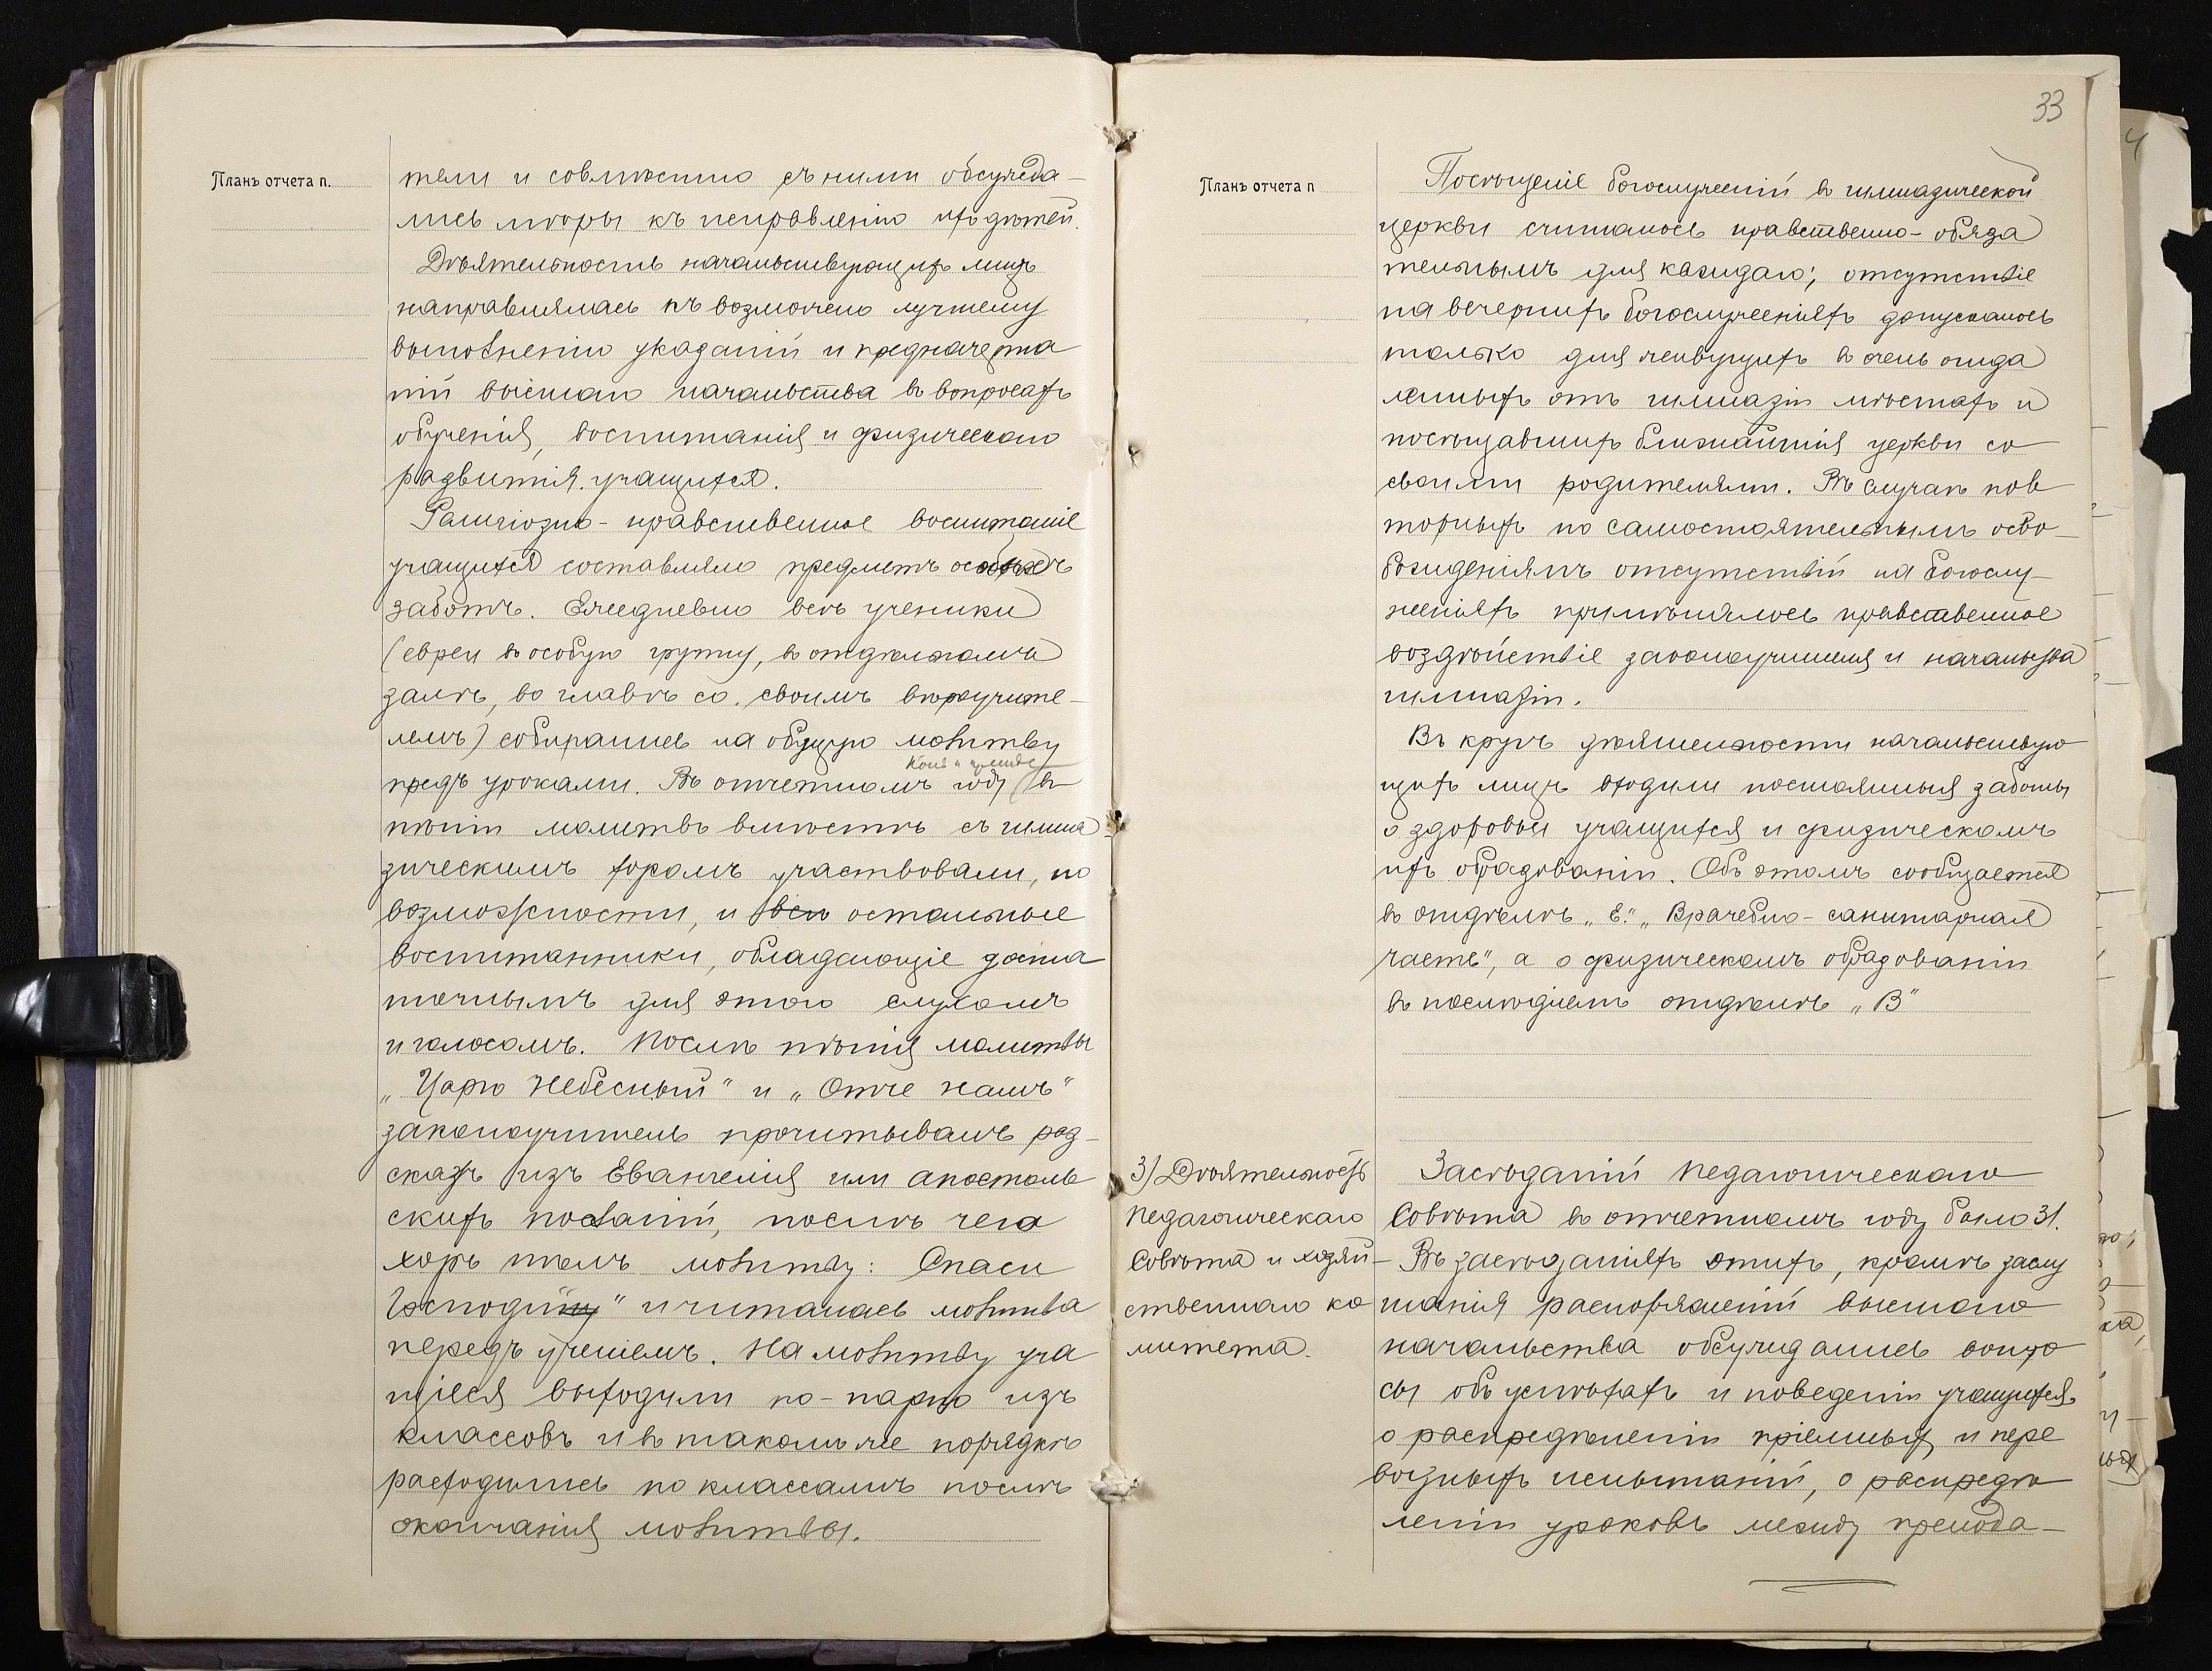 Планъ отчета п.
тели и совмѣстно съ ними обсужда-
лись мѣры къ исправленію ихъ дѣтей.
Дѣятельность начальствующихъ лицъ
направлялась къ возможно лучшему
выполненію указаній и предначерта
ній высшаго начальства въ вопросахъ
обученія, воспитанія и физическаго
развитія учащихся.
Религіозно-нравственное воспитаніе
учащихся составляло предметъ особыхъ
заботъ. Ежедневно всѣ ученики
(евреи въ особую группу, въ отдѣльномъ
залѣ, во главѣ со своимъ вѣроучите-
лемъ) собирались на общую молитву
предъ уроками. Въ отчетномъ году въ
пѣніи молитвъ вмѣстѣ съ гимна-
зическимъ хоромъ участвовали, по
возможности, и всѣ остальные
воспитанники, обладающіе доста
точнымъ для этого слухомъ
и голосомъ. Послѣ пѣнія молитвы
„Царю Небесный" и „Отче нашъ"
законоучитель прочитывалъ раз-
сказъ изъ Евангелія или апостоль
скихъ посланій, послѣ чего
хоръ пѣлъ молитву: Спаси
Господи" и читалась молитва
передъ ученіемъ. На молитву уча
щіеся выходили по-парно изъ
классовъ и въ такомъ же порядкѣ
расходились по классамъ послѣ
окончанія молитвы.
33
Планъ отчета п
Посѣщеніе богослуженій въ гимназической
церкви считалось нравственно-обяза
тельнымъ для каждаго; отсутствіе
на вечернихъ богослуженіяхъ допускалось
только для живущихъ въ очень отда
ленныхъ отъ гимназіи мѣстахъ и
посѣщавшихъ ближайшія церкви со
своими родителями. Въ случаѣ пов
торныхъ по самостоятельнымъ осво-
божденіямъ отсутствій на богослу-
женіяхъ примѣнялось нравственное
воздѣйствіе законоучителя и начальства
гимназіи.
Въ кругъ дѣятельности начальствую
щихъ лицъ входили постоянныя заботы
о здоровьи учащихся и физическомъ
ихъ образованіи. Объ этомъ сообщается
въ отдѣлѣ „Е." „Врачебно-санитарная
часть", а о физическомъ образованіи
въ послѣднемъ отдѣлѣ „В"
3) Дѣятельность
Педагогическаго
Совѣта и хозяй-
ственнаго ко
митета.
Засѣданій Педагогическаго
Совѣта въ отчетномъ году было 31.
Въ засѣданіяхъ этихъ, кромѣ заслу
шанія распоряженій высшаго
начальства обсуждались вопро
сы объ успѣхахъ и поведеніи учащихся,
о распредѣленіи пріемныхъ и пере
водныхъ испытаній, о распредѣ
леніи уроковъ между препода-